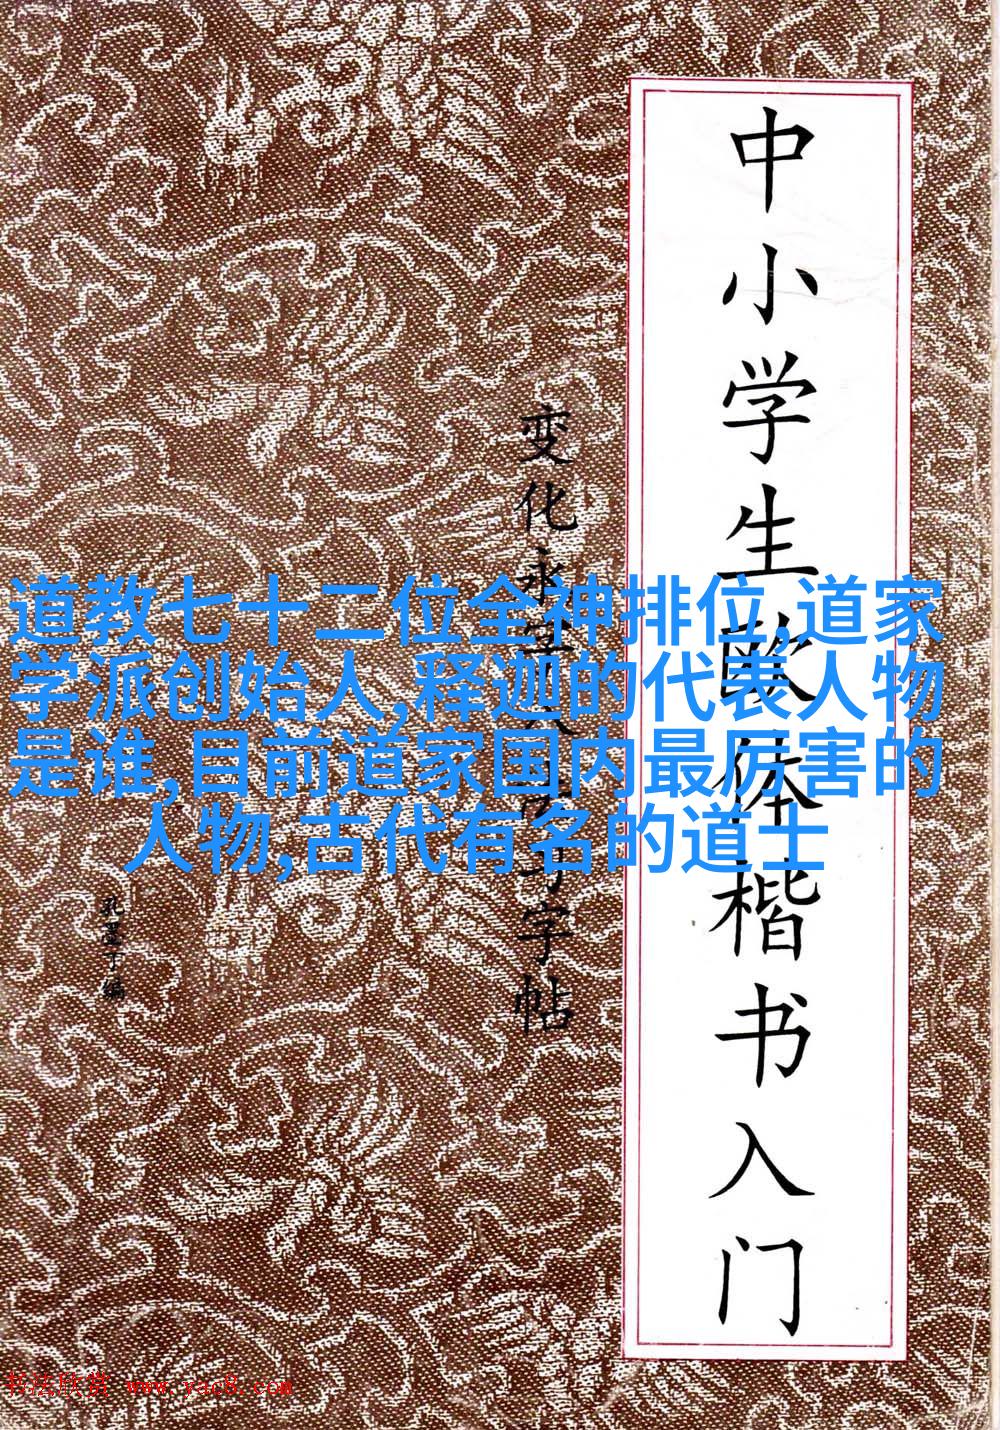 中小学生欧体楷书入门
变化永字八法习字帖
孔墨丁编
道教七十二位全神排位,道家
学派创始人,释迦的代表人物
是谁,目前道家国内最厉害的
人物,古代有名的道士
书法欣赏 www.yac8.com